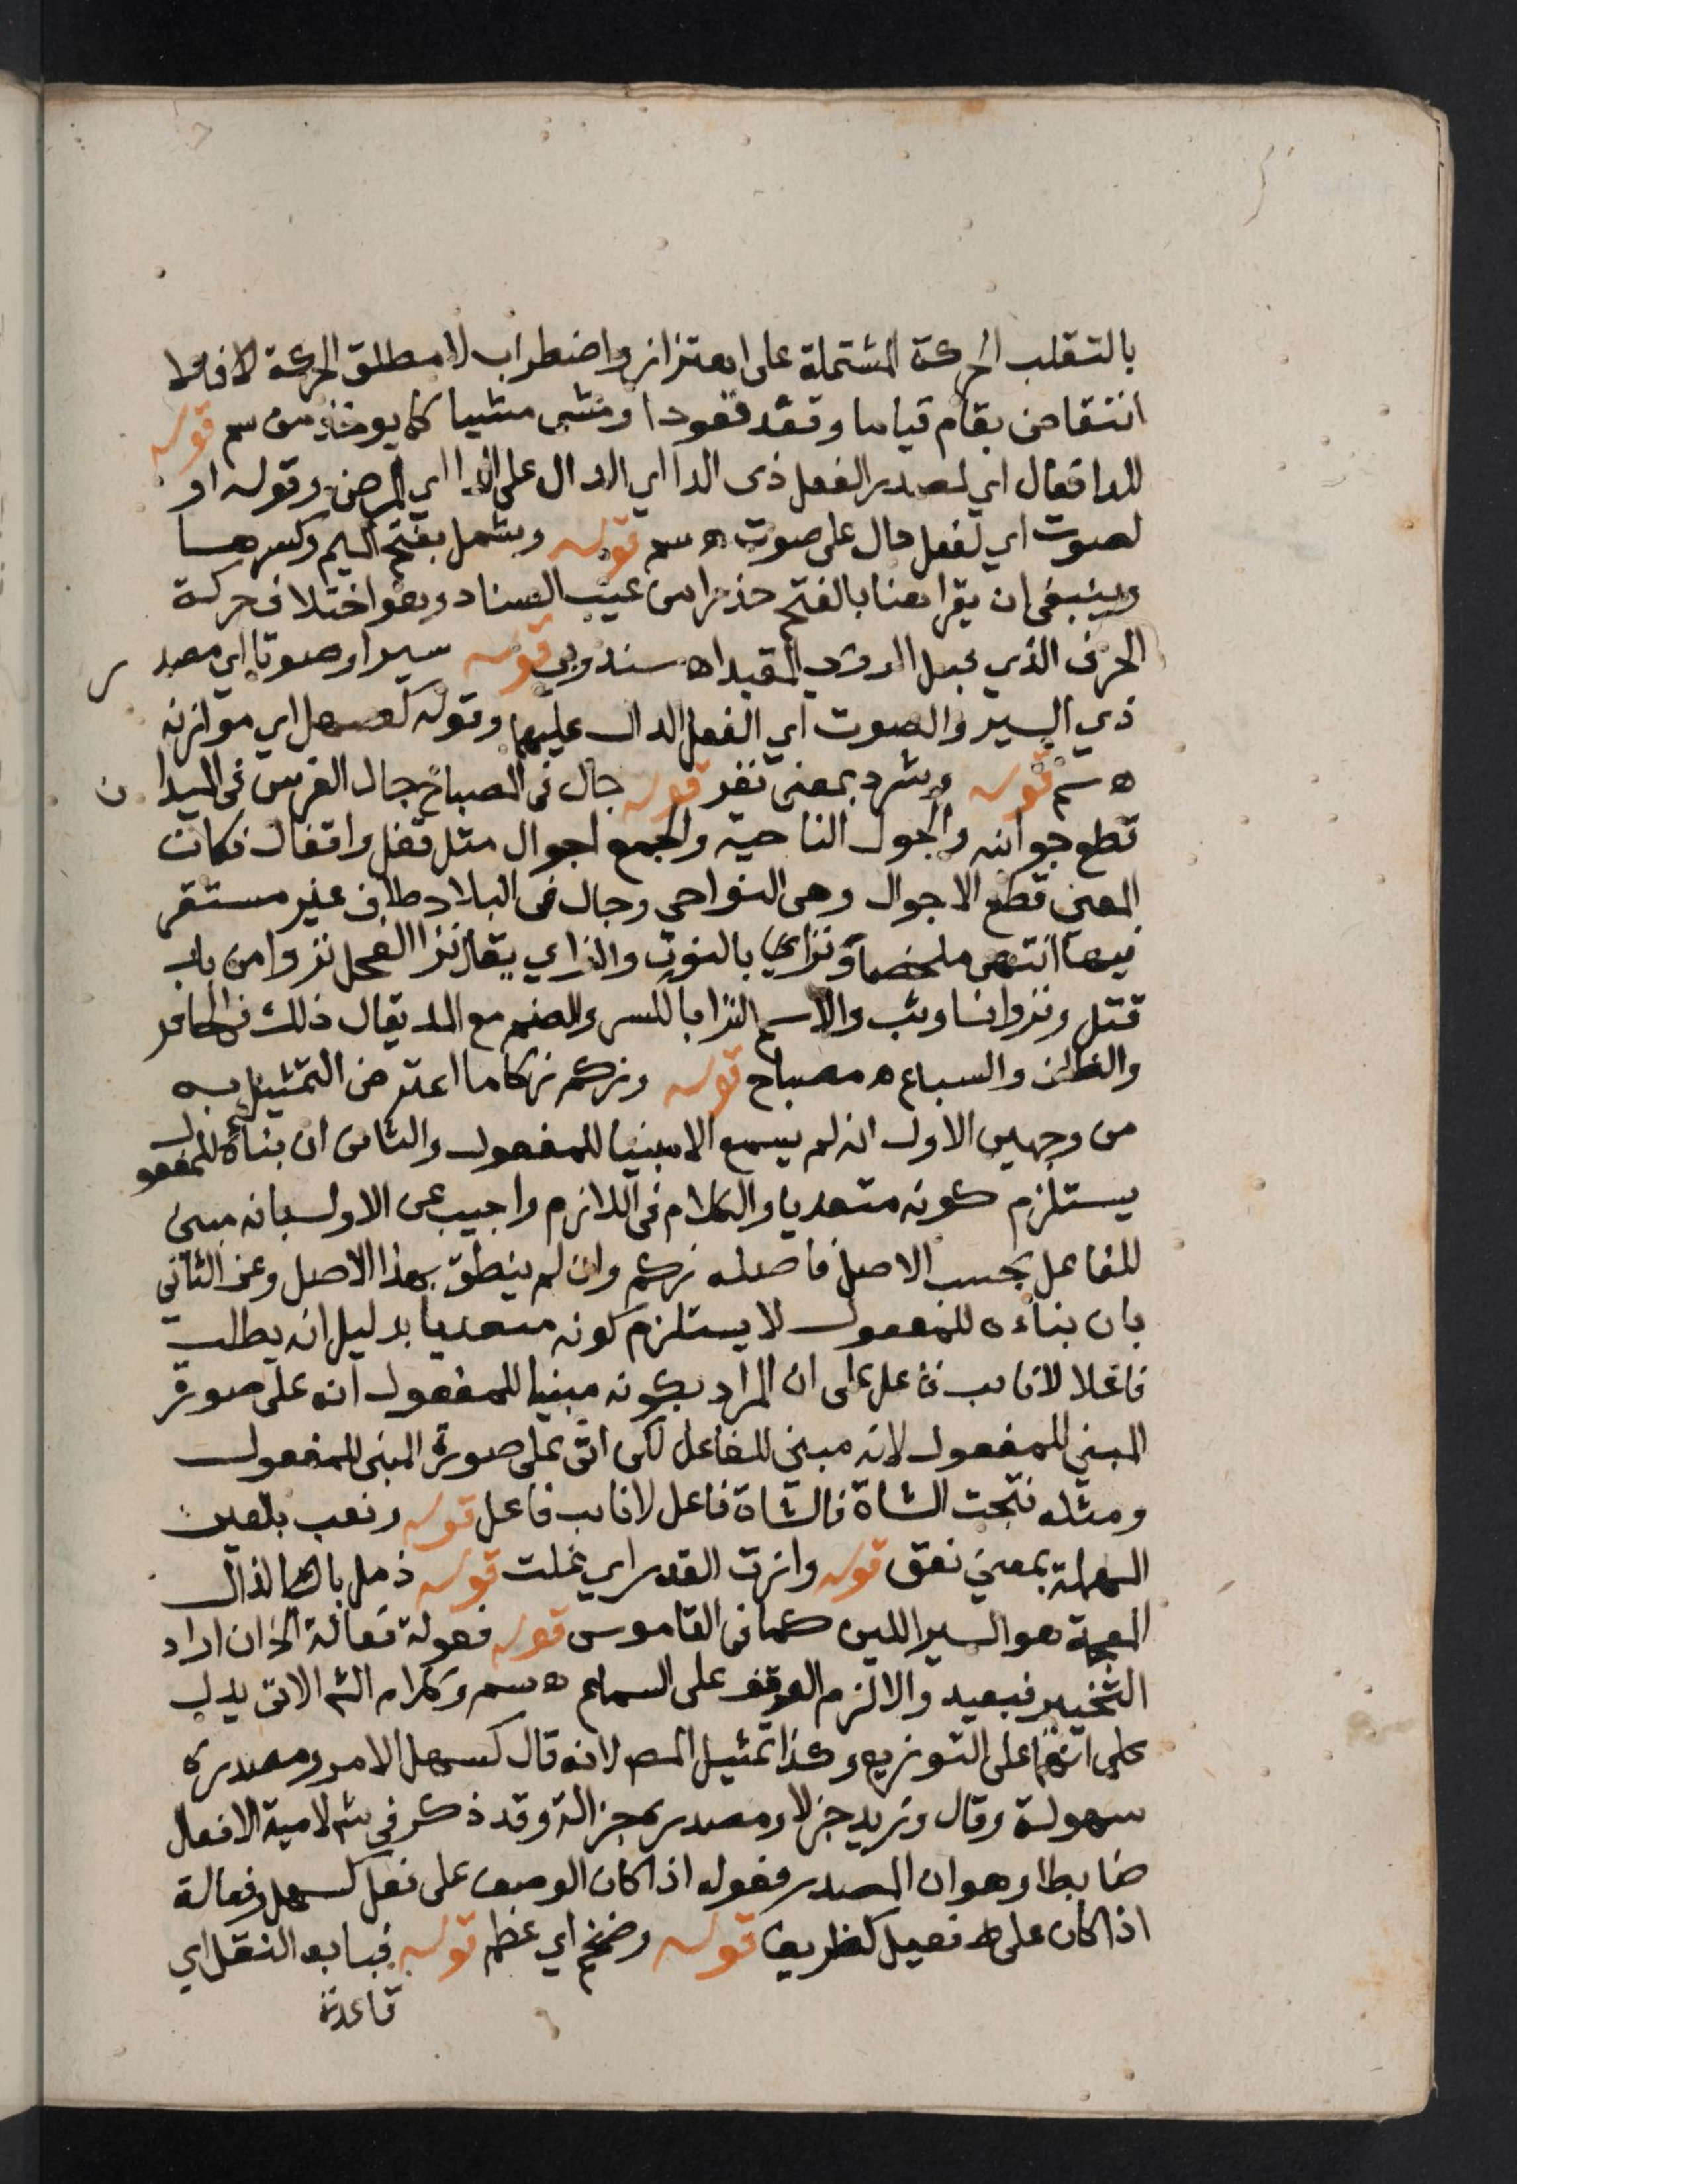 بالتقلب الحركة المشتملة على اهتزاز واضطراب لا مطلق الحركة لافلا
انتقاض بقام قياما وقعد قعودا ومشى مشيا كما يوخذ من سم قوله
للدا فعال اي لمصدر الفعل ذى الدا اي الدال على الدا اي المرض وقوله او
لصوت اي لفعل دال على صوت اه سم قوله وشمل بفتح الميم وكسرها
وينبغى ان يقرا هنا بالفتح حذرا من عيب السناد وهو اختلاف حركة
الحرف الذي قبل الروي المقيد اه سندوبي قوله سيرا وصوتا اي مصد
ر
ذي السير والصوت اي الفعل الدال عليهما وقوله كصهل اي موازنه
اه سم قوله وشرد بمعنى نفر قوله جال فى المصباح جال الفرس فى الميدا
ن
قطع جوانبه والجول الناحية والجمع اجوال مثل قفل واقفال فكان
المعنى قطع الاجوال وهى النواحي وجال فى البلاد طاف غير مستقر
فيها انتهى ملخصا ونزاي بالنون والزاي يقال نزا الفحل نزوا من باب
قتل ونزوانا وثب والاسم النزا بالكسر والضم مع المد يقال ذلك فى الحافر
والظلف والسباع اه مصباح قوله وزكم زكاما اعترض التمثيل به
من وجهين الاول انه لم يسمع الا مبنيا للمفعول والثانى ان بناءه للمفعول
يستلزم كونه متعديا والكلام فى اللازم واجيب عن الاول بانه مبنى
للفاعل بحسب الاصل فاصله زكم وان لم ينطق بهذا الاصل وعن الثاني
بان بناءه للمفعول لا يستلزم كونه متعديا بدليل انه يطلب
فاعلا لا نايب فاعل على ان المراد بكونه مبنيا للمفعول انه على صورة
المبنى للمفعول لانه مبنى للفاعل لكن اتى على صورة المبنى للمفعول
ومثله نتجت الشاة فالشاة فاعل لا نايب فاعل قوله ونعب بالعين
المهملة بمعنى نعق قوله وازت القدر اي غلت قوله ذمل باهمالذال
المعجمة هو السير اللين كما فى القاموس قوله فعولة فعالة الخ ان اراد
التخيير فبعيد والا لزم التوقف على السماع اه سم وكلام الشم الاتى يدل
على انهما على التوزيع وكذا تمثيل المص لانه قال كسهل الامر ومصدره
سهولة وقال وزيد جزلا ومصدره جزالة وقد ذكر فى شم لامية الافعال
ضابطا وهو ان المصدر فعوله اذا كان الوصف على فعل كسهل وفعالة
اذا كان على فعيل كظريف قوله وضخم اي عظم قوله فبابه النقل اي
قاعدته